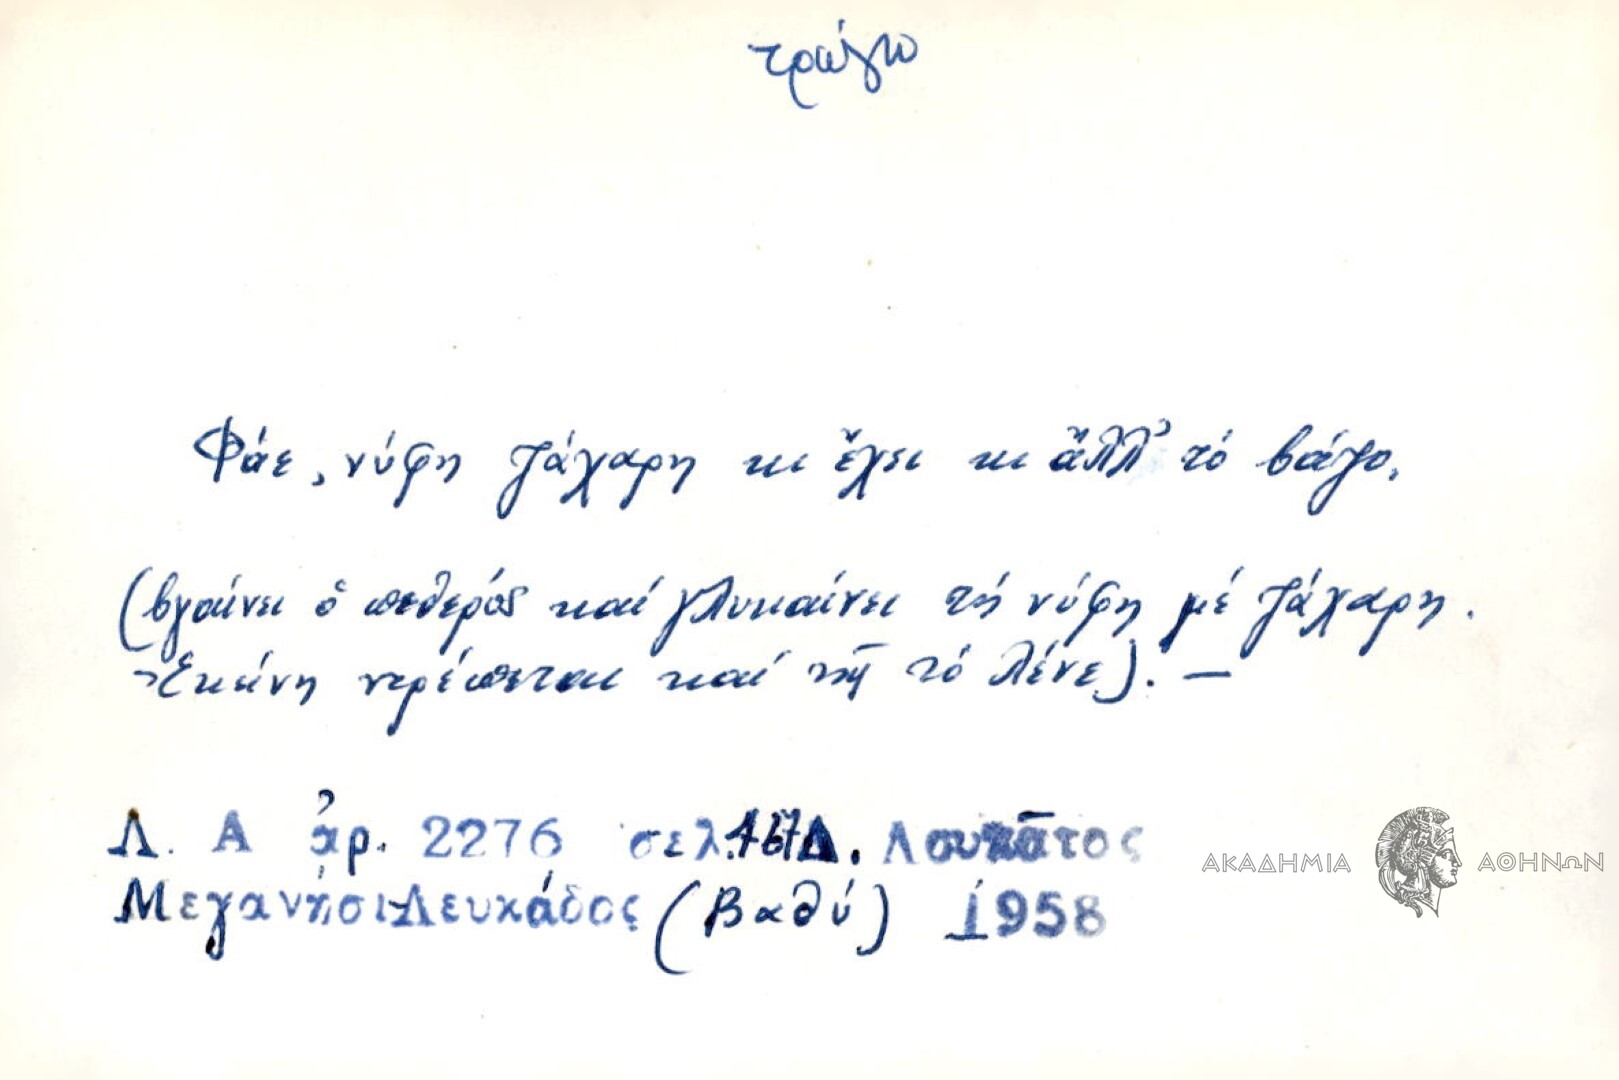 τρώγω
Φάε, νύφη ζάχαρη κι ἔχει κι ἄλλ' τό βάζο.
(βγαίνει ὁ πεθερός καί γλυκαίνει τή νύφη μέ ζάχαρη.
Ἐκείνη ντρέπεται καί τῆς τό λένε). —
Λ. Α ἀρ. 2276 σελ. Δ. Λουκᾶτος
Μεγανήσι Λευκάδος (Βαθύ) 1958
ΑΚΑΔΗΜΙΑ ΑΘΗΝΩΝ